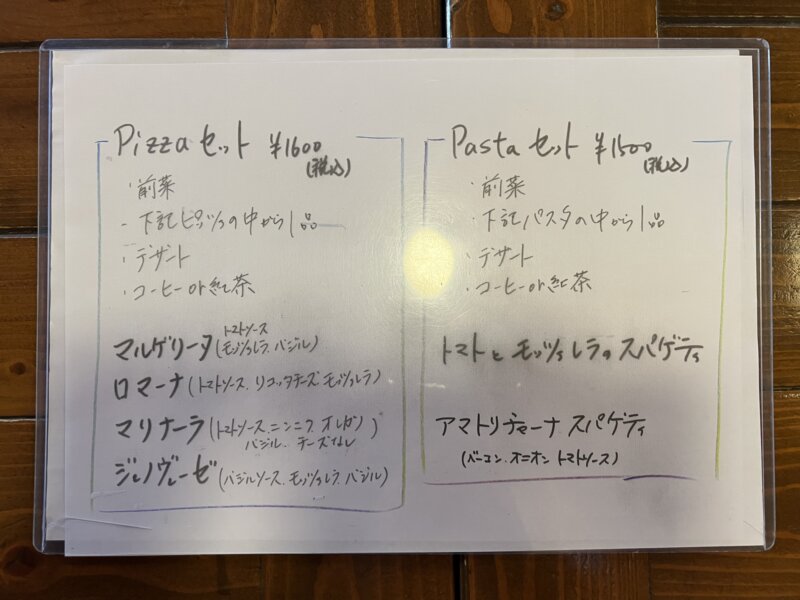 Pizza セット ¥1600
(税込)
・前菜
・下記ピッツァの中から1品
・デザート
・コーヒー or 紅茶
マルゲリータ(トマトソース
モッツァレラ、バジル)
ロマーナ(トマトソース、リコッタチーズ、モッツァレラ)
マリナーラ(トマトソース、ニンニク、オレガノ
バジル、チーズなし)
ジェノヴェーゼ(バジルソース、モッツァレラ、バジル)
Pasta セット ¥1500
(税込)
・前菜
・下記パスタの中から1品
・デザート
・コーヒー or 紅茶
トマトとモッツァレラのスパゲティ
アマトリチャーナ スパゲティ
(ベーコン、オニオン トマトソース)